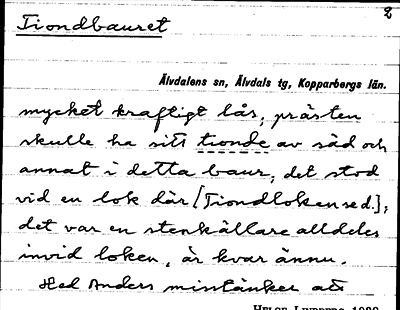 2
Tiondbauret
Älvdalens sn, Älvdals tg, Kopparbergs län.
mycket kraftigt lås, prästen
skulle ha sitt tionde av säd och
annat i detta baur, det stod
vid en lok där [Tiondloken sed.];
det var en stenkällare alldeles
invid loken, är kvar ännu.
Hed Anders misstänker att